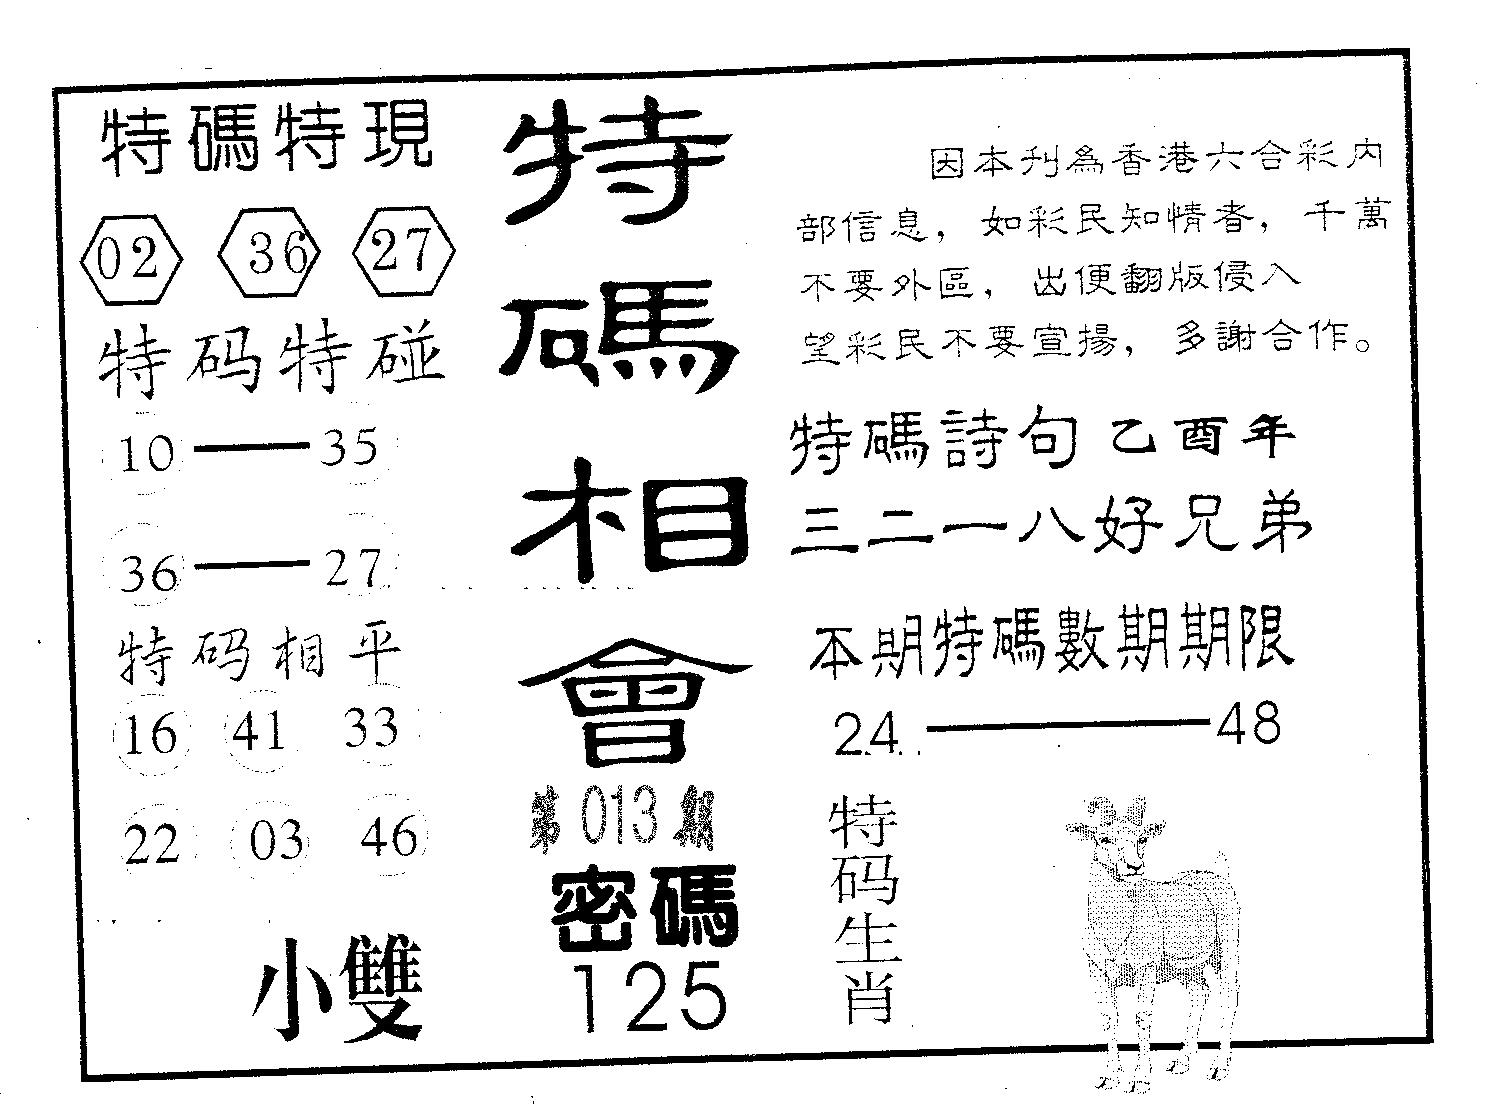 特碼特現
02 36 27
特码特碰
10 — 35
36 — 27
特码相平
16 41 33
22 03 46
小雙
特碼相會
第013期
密碼
125
因本刊為香港六合彩內
部信息，如彩民知情者，千萬
不要外區，出便翻版侵入
望彩民不要宣揚，多謝合作。
特碼詩句乙酉年
三二一八好兄弟
本期特碼數期期限
24 — 48
特码生肖